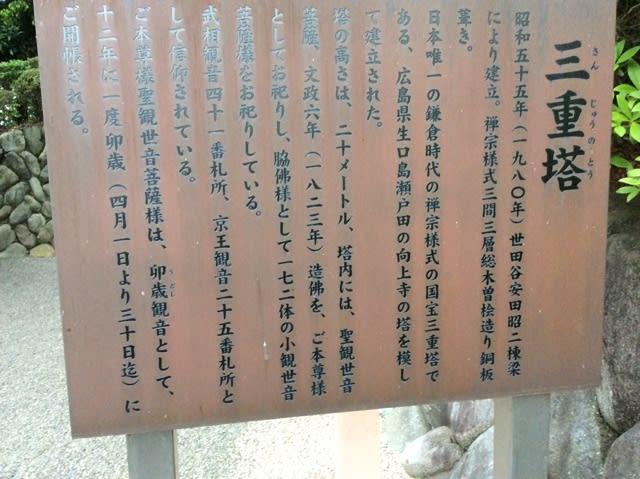 三重塔
さんじゅうのとう
昭和五十五年(一九八〇年)世田谷安田昭二棟梁
により建立。禅宗様式三間三層総木曽桧造り銅板
葺き。
日本唯一の鎌倉時代の禅宗様式の国宝三重塔で
ある、広島県生口島瀬戸田の向上寺の塔を模し
て建立された。
塔の高さは、二十メートル、塔内には、聖観世音
菩薩、文政六年(一八二三年)造佛を、ご本尊様
としてお祀りし、脇佛様として一七二体の小観世音
菩薩様をお祀りしている。
武相観音四十一番札所、京王観音二十五番札所と
して信仰されている。
ご本尊様聖観世音菩薩様は、卯歳観音として、
うどし
十二年に一度卯歳(四月一日より三十日迄)に
ご開帳される。